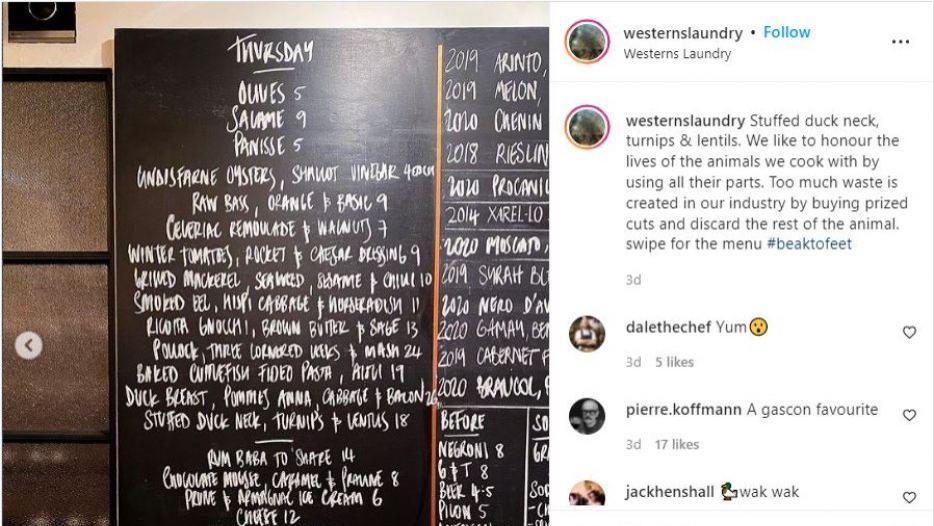 THURSDAY
OLIVES 5
SALAME 9
PANISSE 5
LINDISFARNE OYSTERS, SHALLOT VINEGAR 4 EACH
RAW BASS, ORANGE & BASIL 9
CELERIAC REMOULADE & WALNUTS 7
WINTER TOMATOES, ROCKET & CAESAR DRESSING 9
GRILLED MACKEREL, SEAWEED, SESAME & CHILLI 10
SMOKED EEL, HISPI CABBAGE & HORSERADISH 11
RICOTTA GNOCCHI, BROWN BUTTER & SAGE 13
POLLOCK, THREE CORNERED LEEKS & MASH 24
BAKED CUTTLEFISH FIDEO PASTA, AIOLI 19
DUCK BREAST, POMMES ANNA, CABBAGE & BACON 26
STUFFED DUCK NECK, TURNIPS & LENTILS 18
RUM BABA TO SHARE 14
CHOCOLATE MOUSSE, CARAMEL & PRALINE 8
PRUNE & ARMAGNAC ICE CREAM 6
CHEESE 12
2019 ARINTO,
2019 MELON,
2020 CHENIN
2018 RIESLIN
2020 PROCANIC
2014 XAREL-LO
2020 MOSCATO,
2019 SYRAH BL
2020 NERO D'AV
2020 GAMAY, BE
2019 CABERNET F
2020 BRAUCOL,
BEFORE
NEGRONI 8
G & T 8
BEER 4.5
PILON 5
SO
GR
SOD
westernslaundry • Follow
Westerns Laundry
westernslaundry Stuffed duck neck,
turnips & lentils. We like to honour the
lives of the animals we cook with by
using all their parts. Too much waste is
created in our industry by buying prized
cuts and discard the rest of the animal.
swipe for the menu #beaktofeet
3d
dalethechef Yum😮
3d 5 likes
pierre.koffmann A gascon favourite
3d 17 likes
jackhenshall 🦆wak wak